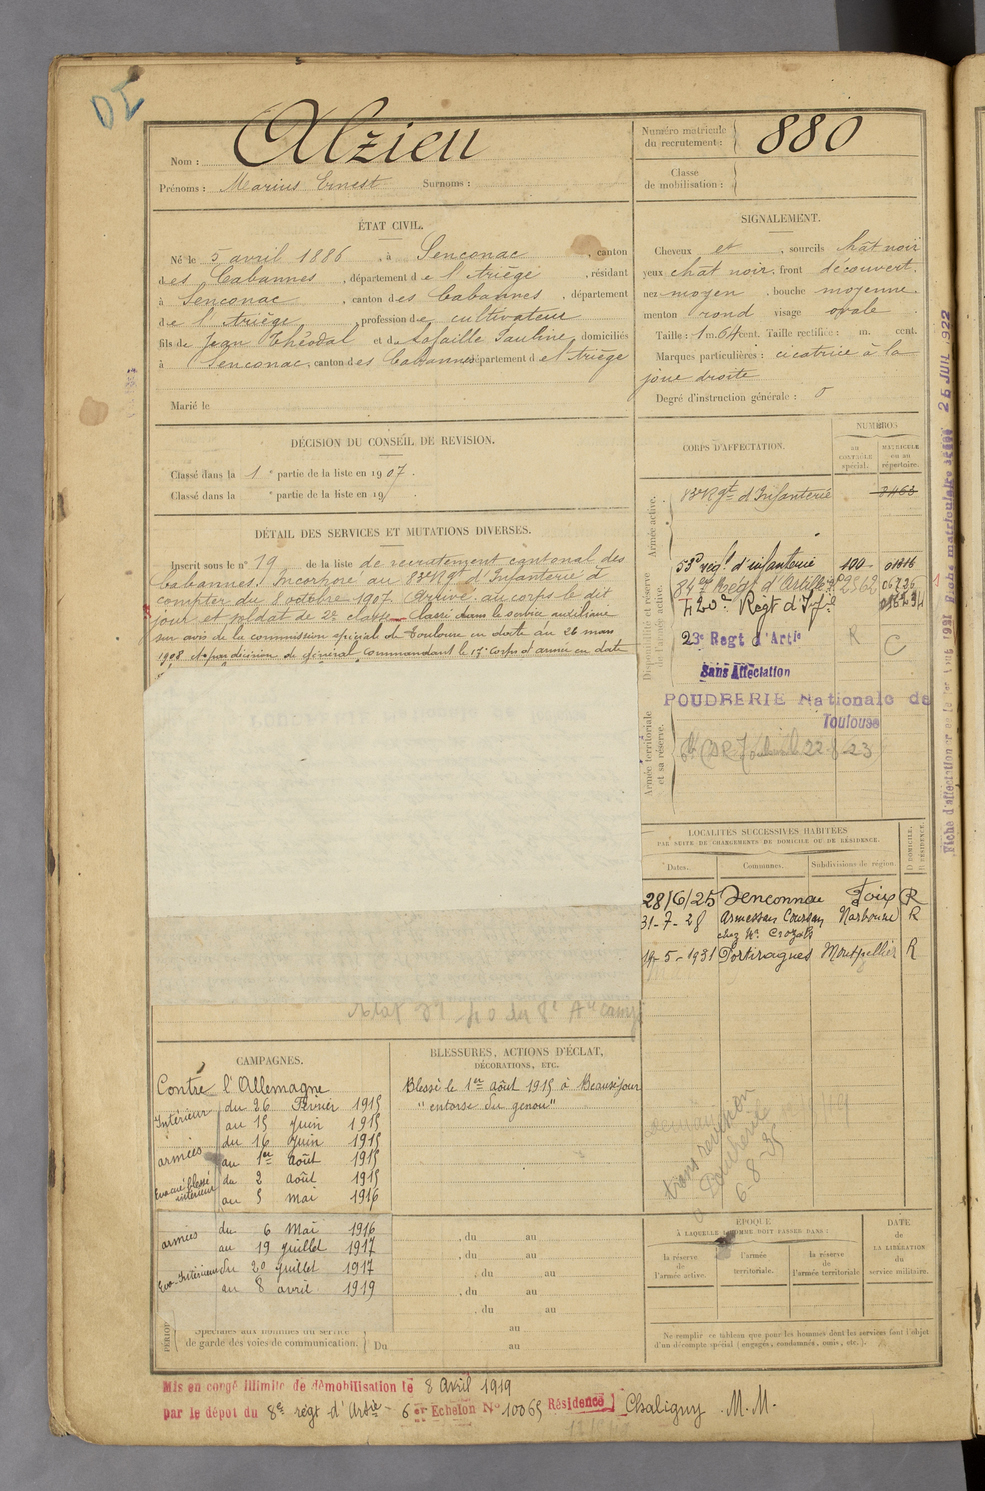 Nom : Alzieu
Prénoms : Marius Ernest Surnoms :
Numéro matricule du recrutement : 880
Classe de mobilisation :
ÉTAT CIVIL.
Né le 5 avril 1886, à Senconac, canton
des Cabannes, département de l'Ariège, résidant
à Senconac, canton des Cabannes, département
de l'Ariège, profession de cultivateur
fils de Jean Théodat et de Lafaille Pauline, domiciliés
à Senconac, canton des Cabannes, département de l'Ariège
Marié le
SIGNALEMENT.
Cheveux et, sourcils chât noir
yeux chat noir, front découvert.
nez moyen, bouche moyenne.
menton rond visage ovale.
Taille : 1 m. 64 cent. Taille rectifiée : m. cent.
Marques particulières : cicatrice à la
joue droite
Degré d'instruction générale : 0
DÉCISION DU CONSEIL DE REVISION.
Classé dans la 1e partie de la liste en 1907.
Classé dans la e partie de la liste en 19
DÉTAIL DES SERVICES ET MUTATIONS DIVERSES.
Inscrit sous le n° 19 de la liste de recrutement cantonal des
Cabannes. Incorporé au 83e Rgt d'Infanterie à
compter du 8 octobre 1907. Arrivé au corps le dit
jour et soldat de 2e classe. Classé dans le service auxiliaire
sur avis de la commission spéciale de Toulouse en date du 26 mars
1908 et par décision du général commandant le 17e corps d'armée en date
CORPS D'AFFECTATION.
NUMÉROS
AU CONTRÔLE spécial.
MATRICULE ou au répertoire.
Armée active.
83e Rgt d'Infanterie 8463
Disponibilité et réserve de l'armée active.
53e rég.t d'infanterie 100 01816
Regt d'Artillerie
420e Regt d'Inf.ie
23e Regt d'Artie R C
Sans Affectation
POUDRERIE Nationale de
Toulouse
Armée territoriale et sa réserve.
Fiche d'affectation
26 JUIL 1922
LOCALITÉS SUCCESSIVES HABITÉES
PAR SUITE DE CHANGEMENTS DE DOMICILE OU DE RÉSIDENCE.
Dates. Communes. Subdivisions de région. D DOMICILE. R RÉSIDENCE.
28/6/25 Senconnac Foix R
31-7-28 Armessan Coursan Narbonne R
chez Mr Crozals
19-5-1931 Portiragnes Montpellier R
CAMPAGNES.
Contre l'Allemagne
Intérieur du 26 Février 1915
au 15 Juin 1915
armées du 16 Juin 1915
au 1er Août 1915
Evacué blessé intérieur du 2 Août 1915
au 5 Mai 1916
armées du 6 Mai 1916
au 19 Juillet 1917
Eva. Intérieur du 20 Juillet 1917
au 8 avril 1919
BLESSURES, ACTIONS D'ÉCLAT,
DÉCORATIONS, ETC.
Blessé le 1er Août 1915 à Beauséjour
"entorse du genou"
, du au
, du au
, du au
, du au
, du au
au
Spéciales aux hommes du service
de garde des voies de communication. Du au
Poudrerie
6-8-35
ÉPOQUE
À LAQUELLE L'HOMME DOIT PASSER DANS :
la réserve de l'armée active.
l'armée territoriale.
la réserve de l'armée territoriale
DATE de LA LIBÉRATION du service militaire.
Ne remplir ce tableau que pour les hommes dont les services font l'objet
d'un décompte spécial (engagés, condamnés, omis, etc.).
Mis en congé illimité de démobilisation le 8 Avril 1919
par le dépôt du 8e régt d'Artie - 6er Echelon N° 10065 Résidence Chaligny M.M.